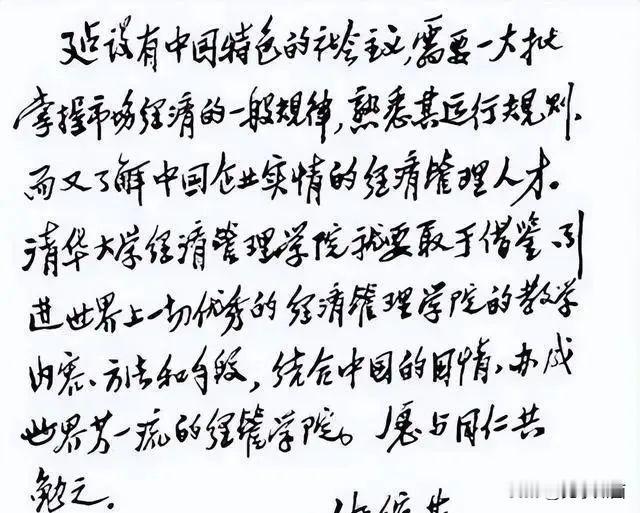 建设有中国特色的社会主义,需要一大批
掌握市场经济的一般规律,熟悉其运行规则、
而又了解中国企业实情的经济管理人才。
清华大学经济管理学院就要敢于借鉴、引
进世界上一切优秀的经济管理学院的教学
内容、方法和手段,结合中国的国情、办成
世界第一流的经管学院。愿与同仁共
勉之.